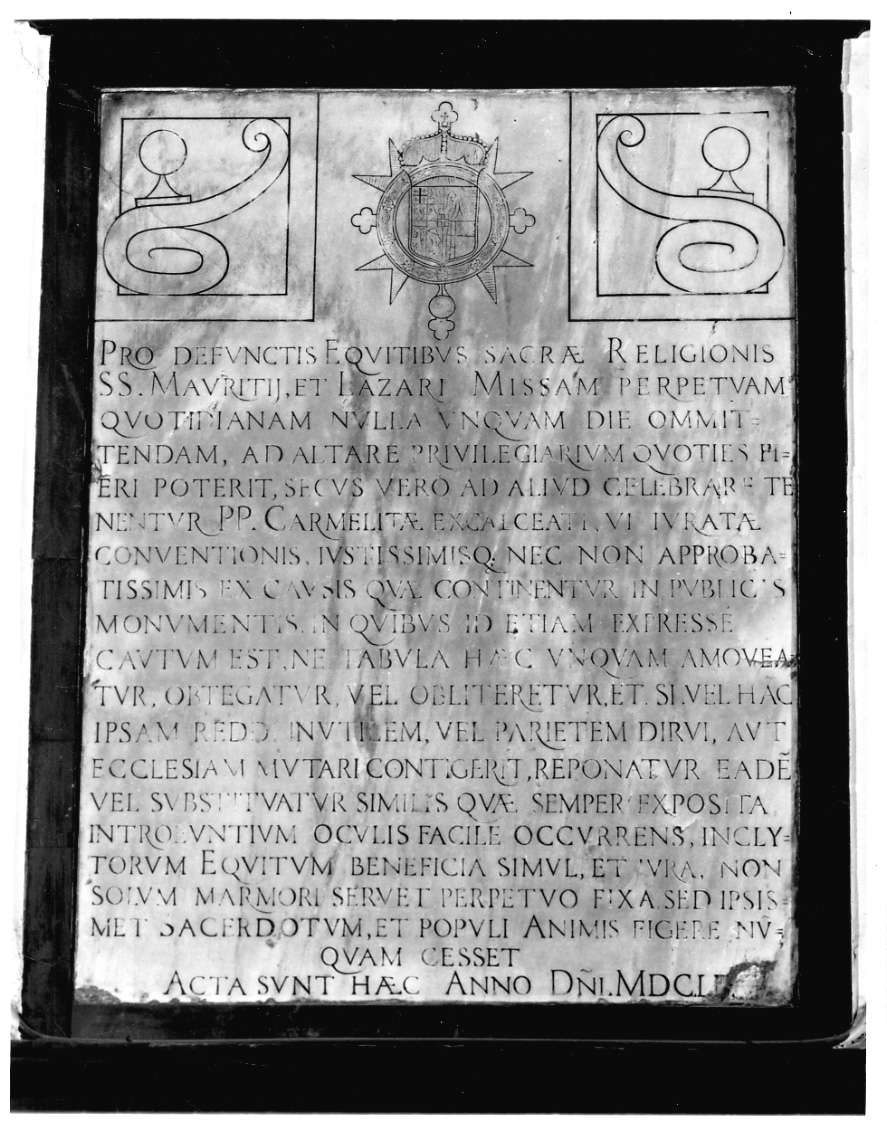 PRO DEFVNCTIS EQVITIBVS SACRÆ RELIGIONIS
SS. MAVRITIJ, ET LAZARI MISSAM PERPETVAM
QVOTIDIANAM NVLLA VNQVAM DIE OMMIT=
TENDAM, AD ALTARE PRIVILEGIARIVM QVOTIES FI=
ERI POTERIT, SECVS VERO AD ALIVD CELEBRARE TE
NENTVR PP. CARMELITÆ EXCALCEATI, VI IVRATÆ
CONVENTIONIS, IVSTISSIMISQ; NEC NON APPROBA=
TISSIMIS EX CAVSIS QVÆ CONTINENTVR IN PVBLICIS
MONVMENTIS. IN QVIBVS ID ETIAM EXPRESSE
CAVTVM EST, NE TABVLA HÆC VNQVAM AMOVEA
TVR, OBTEGATVR, VEL OBLITERETVR, ET. SI VEL HAC
IPSAM REDDI INVTILEM, VEL PARIETEM DIRVI, AVT
ECCLESIAM MVTARI CONTIGERIT, REPONATVR EADẼ
VEL SVBSTITVATVR SIMILIS QVÆ SEMPER EXPOSITA
INTROEVNTIVM OCVLIS FACILE OCCVRRENS, INCLY=
TORVM EQVITVM BENEFICIA SIMVL, ET IVRA, NON
SOLVM MARMORI SERVET PERPETVO FIXA SED IPSIS=
MET SACERDOTVM, ET POPVLI ANIMIS FIGERE NŨ=
QVAM CESSET
ACTA SVNT HÆC ANNO DÑI.